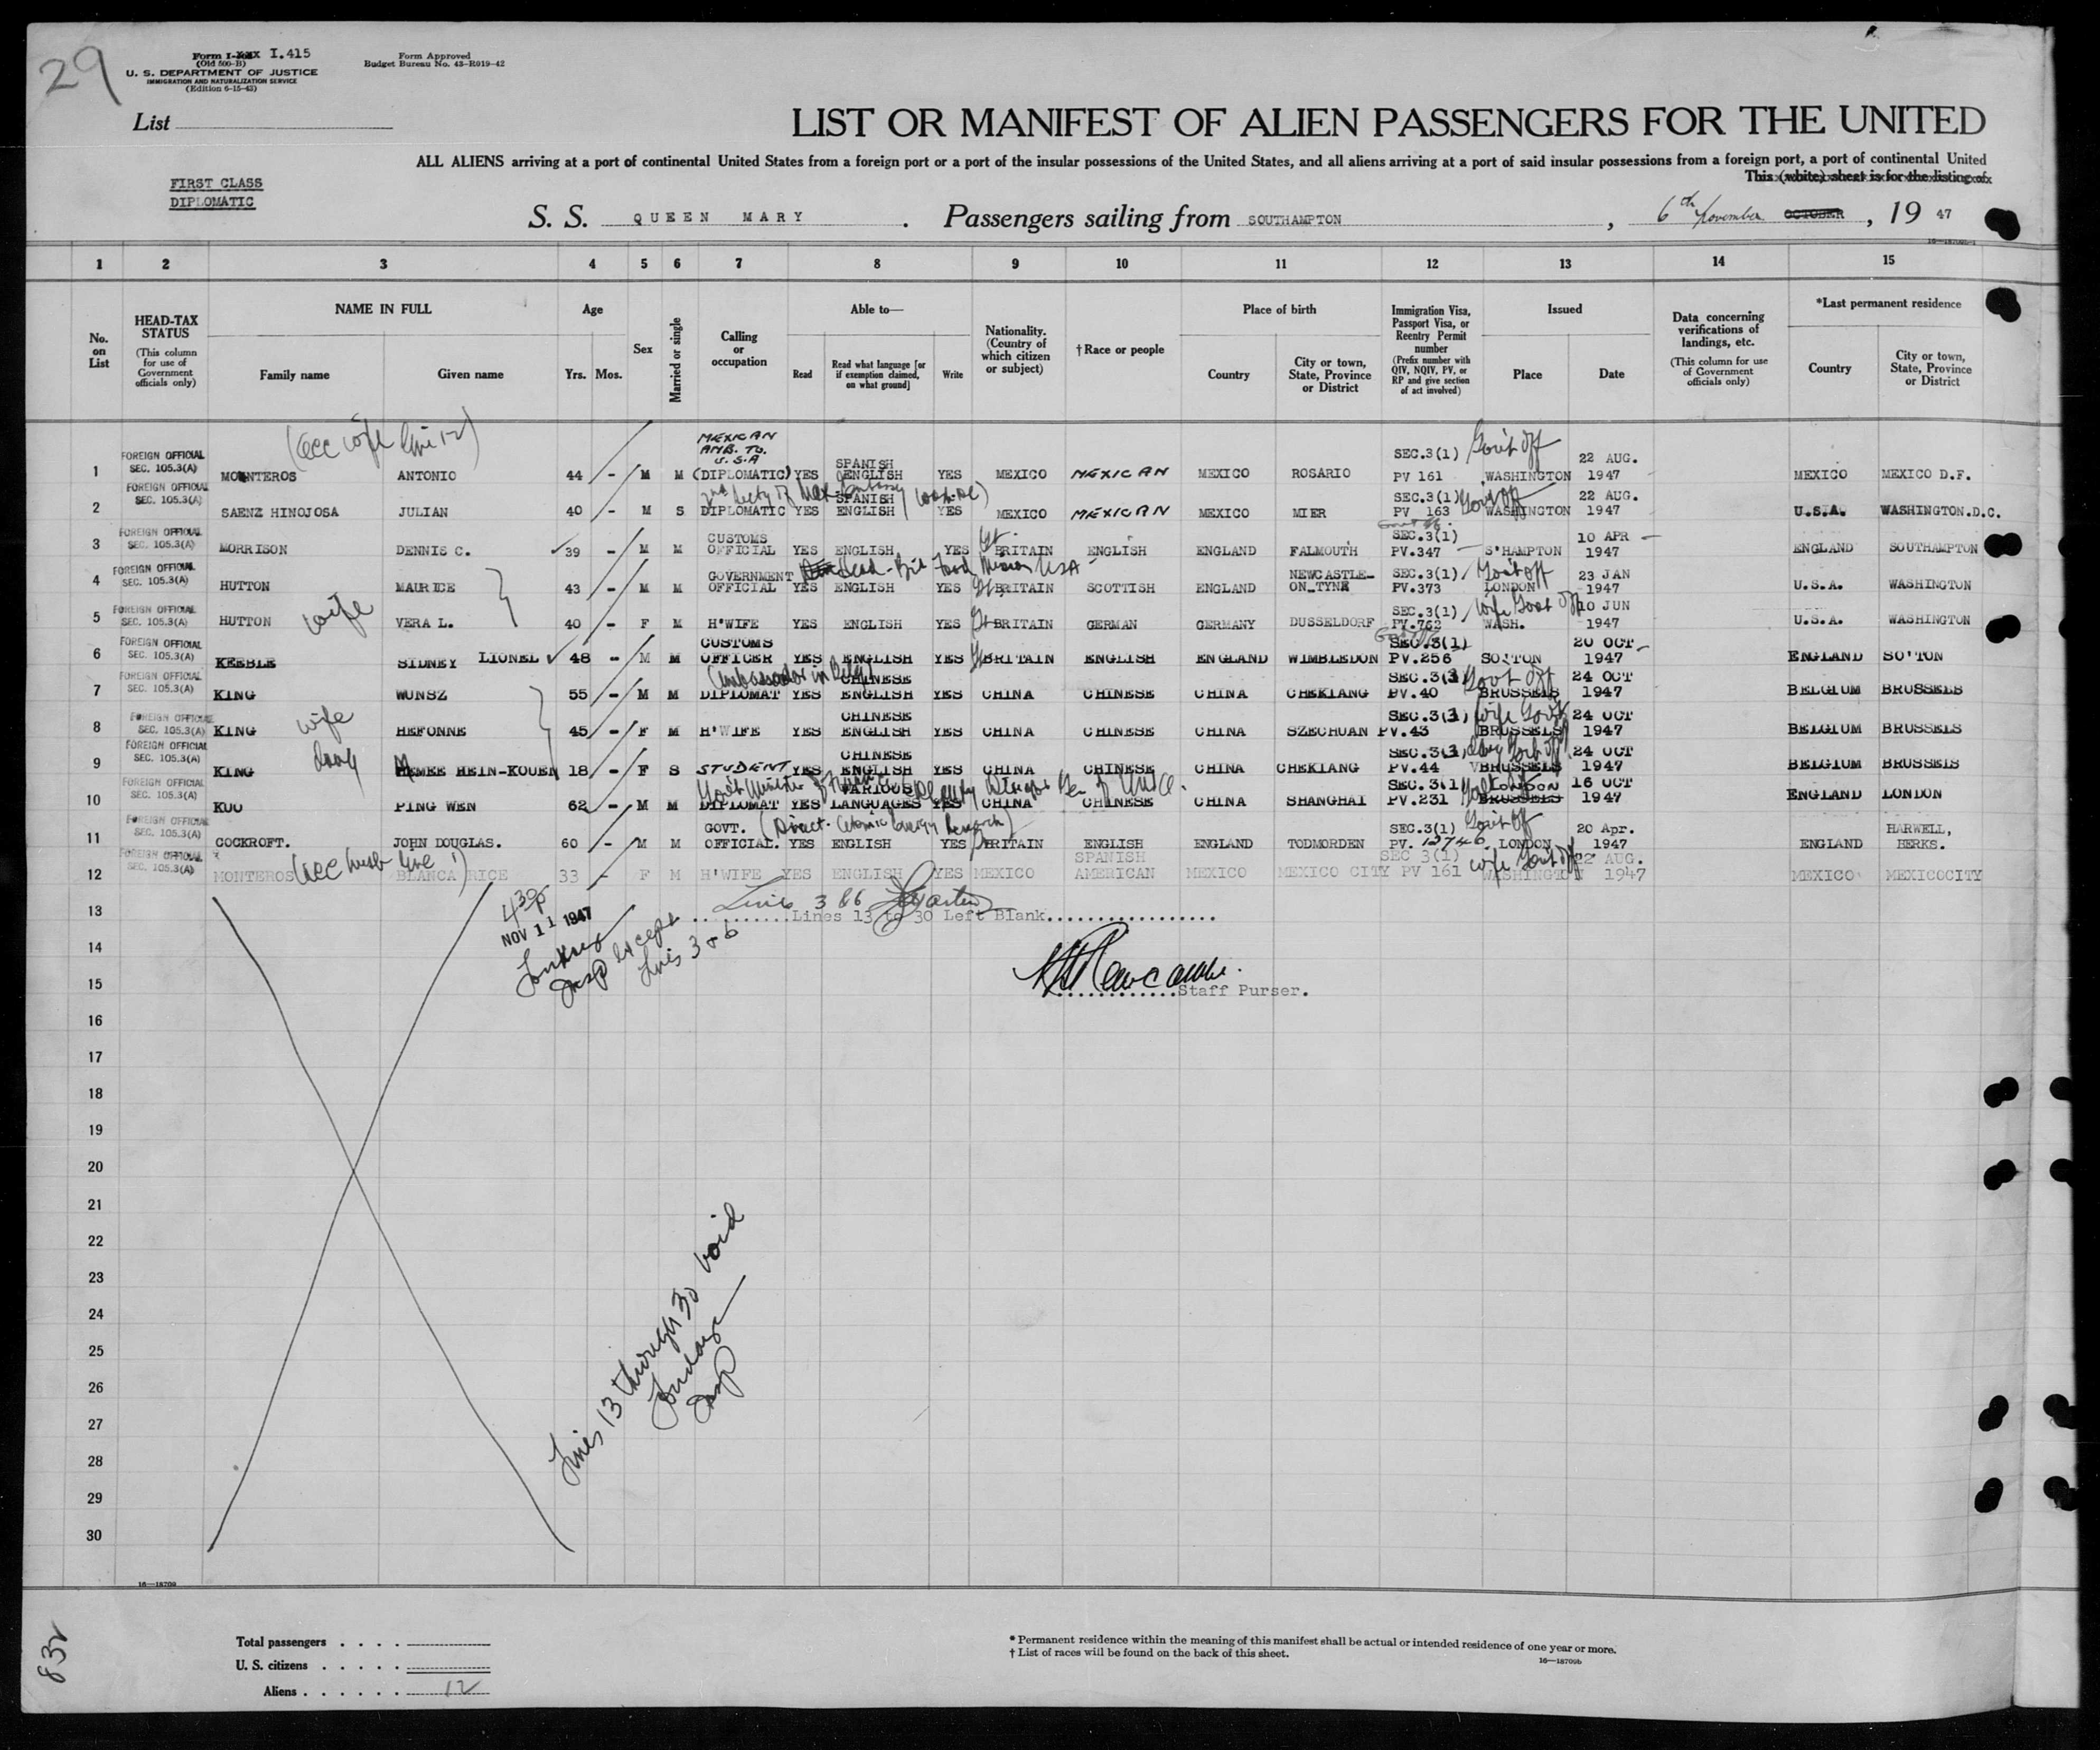 29
Form I-xxx I.415
(Old 500-B)
U. S. DEPARTMENT OF JUSTICE
IMMIGRATION AND NATURALIZATION SERVICE
(Edition 6-15-43)
Form Approved
Budget Bureau No. 43-R019-42
List
LIST OR MANIFEST OF ALIEN PASSENGERS FOR THE UNITED
ALL ALIENS arriving at a port of continental United States from a foreign port or a port of the insular possessions of the United States, and all aliens arriving at a port of said insular possessions from a foreign port, a port of continental United
This (white) sheet is for the listing of
FIRST CLASS
DIPLOMATIC
S. S. QUEEN MARY . Passengers sailing from SOUTHAMPTON , 6th November OCTOBER , 19 47
1 2 3 4 5 6 7 8 9 10 11 12 13 14 15
No. on List
HEAD-TAX STATUS
(This column for use of Government officials only)
NAME IN FULL
Family name Given name
Age
Yrs. Mos.
Sex
Married or single
Calling or occupation
Able to—
Read Read what language [or if exemption claimed, on what ground] Write
Nationality. (Country of which citizen or subject)
†Race or people
Place of birth
Country City or town, State, Province or District
Immigration Visa, Passport Visa, or Reentry Permit number
(Prefix number with QIV, NQIV, PV, or RP and give section of act involved)
Issued
Place Date
Data concerning verifications of landings, etc.
(This column for use of Government officials only)
*Last permanent residence
Country City or town, State, Province or District
(see wife line 12)
MEXICAN AMB. TO. U.S.A
1 FOREIGN OFFICIAL SEC. 105.3(A) MONTEROS ANTONIO 44 - M M (DIPLOMATIC) YES SPANISH ENGLISH YES MEXICO MEXICAN MEXICO ROSARIO SEC.3(1) PV 161 Gov't Off WASHINGTON 22 AUG. 1947 MEXICO MEXICO D.F.
2 FOREIGN OFFICIAL SEC. 105.3(A) SAENZ HINOJOSA JULIAN 40 - M S DIPLOMATIC YES SPANISH ENGLISH YES MEXICO MEXICAN MEXICO MIER SEC.3(1) PV 163 Gov't Off WASHINGTON 22 AUG. 1947 U.S.A. WASHINGTON.D.C.
3 FOREIGN OFFICIAL SEC. 105.3(A) MORRISON DENNIS C. 39 - M M CUSTOMS OFFICIAL YES ENGLISH YES Gt. BRITAIN ENGLISH ENGLAND FALMOUTH SEC.3(1) PV.347 S'HAMPTON 10 APR 1947 ENGLAND SOUTHAMPTON
4 FOREIGN OFFICIAL SEC. 105.3(A) HUTTON MAURICE 43 - M M GOVERNMENT OFFICIAL Head - Brit Food Mission USA YES ENGLISH YES Gt BRITAIN SCOTTISH ENGLAND NEWCASTLE-ON_TYNE SEC.3(1) PV.373 Gov't off LONDON 23 JAN 1947 U.S.A. WASHINGTON
5 FOREIGN OFFICIAL SEC. 105.3(A) HUTTON wife VERA L. 40 - F M H'WIFE YES ENGLISH YES Gt BRITAIN GERMAN GERMANY DUSSELDORF SEC.3(1) PV.762 wife Govt Off WASH. 10 JUN 1947 U.S.A. WASHINGTON
6 FOREIGN OFFICIAL SEC. 105.3(A) KEEBLE SIDNEY LIONEL 48 - M M CUSTOMS OFFICER YES ENGLISH YES Gt BRITAIN ENGLISH ENGLAND WIMBLEDON SEC.3(1) PV.256 SO'TON 20 OCT 1947 ENGLAND SO'TON
7 FOREIGN OFFICIAL SEC. 105.3(A) KING WUNSZ 55 - M M DIPLOMAT YES CHINESE ENGLISH YES CHINA CHINESE CHINA CHEKIANG SEC.3(1) PV.40 Govt Off BRUSSELS 24 OCT 1947 BELGIUM BRUSSELS
8 FOREIGN OFFICIAL SEC. 105.3(A) KING wife HEFONNE 45 - F M H'WIFE YES CHINESE ENGLISH YES CHINA CHINESE CHINA SZECHUAN SEC.3(1) PV.43 wife Govt BRUSSELS 24 OCT 1947 BELGIUM BRUSSELS
9 FOREIGN OFFICIAL SEC. 105.3(A) KING AIMEE HEIN-KOUEN 18 - F S STUDENT YES CHINESE ENGLISH YES CHINA CHINESE CHINA CHEKIANG SEC.3(1) PV.44 BRUSSELS 24 OCT 1947 BELGIUM BRUSSELS
10 FOREIGN OFFICIAL SEC. 105.3(A) KUO PING WEN 62 - M M DIPLOMAT YES VARIOUS LANGUAGES YES CHINA CHINESE CHINA SHANGHAI SEC.3(1) PV.231 LONDON BRUSSELS 16 OCT 1947 ENGLAND LONDON
11 FOREIGN OFFICIAL SEC. 105.3(A) COCKROFT. JOHN DOUGLAS. 60 - M M GOVT. OFFICIAL. (Direct. Atomic Energy Research) YES ENGLISH YES BRITAIN ENGLISH ENGLAND TODMORDEN SEC.3(1) PV. 12746 Gov't Off LONDON 20 Apr. 1947 ENGLAND HARWELL, HERKS.
12 FOREIGN OFFICIAL SEC. 105.3(A) MONTEROS (see husb line 1) BLANCA RICE 33 - F M H'WIFE YES ENGLISH YES MEXICO SPANISH AMERICAN MEXICO MEXICO CITY SEC 3(1) PV 161 wife Gov't Off WASHINGTON 22 AUG. 1947 MEXICO MEXICOCITY
13 Lines 3 & 6
Lines 13 to 30 Left Blank
430p
NOV 11 1947
Insp except Lines 3 & 6
14
15 Staff Purser.
16
17
18
19
20
21
22
23
24
25
26
27
28
29
30
Lines 13 through 30 void
Insp
16—18709
832
Total passengers
U. S. citizens
Aliens 12
* Permanent residence within the meaning of this manifest shall be actual or intended residence of one year or more.
† List of races will be found on the back of this sheet.
16—18709b